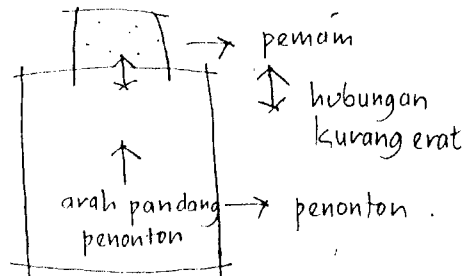 pemain
hubungan
kurang erat
arah pandang
penonton
penonton .